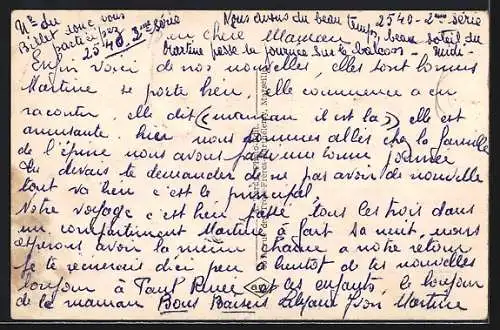 Nº du
Billet dont vous
participez
2540 - 2ème série
Nous avons du beau temps, beau soleil du midi -
2540 - 2ème série
Martine passe la journée sur le balcon -
ma chère Maman
Enfin voici de nos nouvelles, elles sont bonnes
Martine se porte bien, elle commence a en
raconter, elle dit (maman il est la) elle est
amusante. hier nous sommes allés chez la famille
de l'épine nous avons passé une bonne journée
tu devais te demander de ne pas avoir de nouvelle
tout va bien c'est le principal.
Notre voyage c'est bien passé, tous les trois dans
un compartiment Martine a fait sa nuit, nous
avoir la même chance a notre retour
je te d'ici peu a bientot de tes nouvelles
bonjour à Paul et les enfants, le bonjour
de la maman Bons Baisers Lilyane Yvon Martine